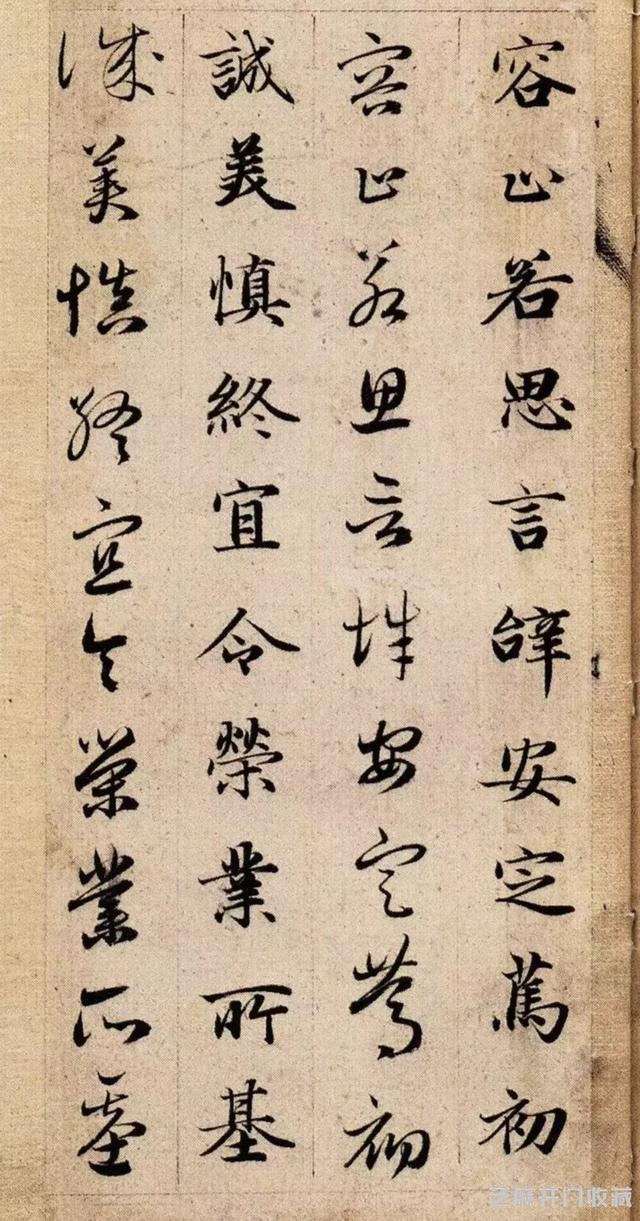 容止若思言辝安定篤初
容止若思言辞安定篤初
誠美慎終宜令榮業所基
誠美慎終宜令榮業所基
芝麻开门收藏